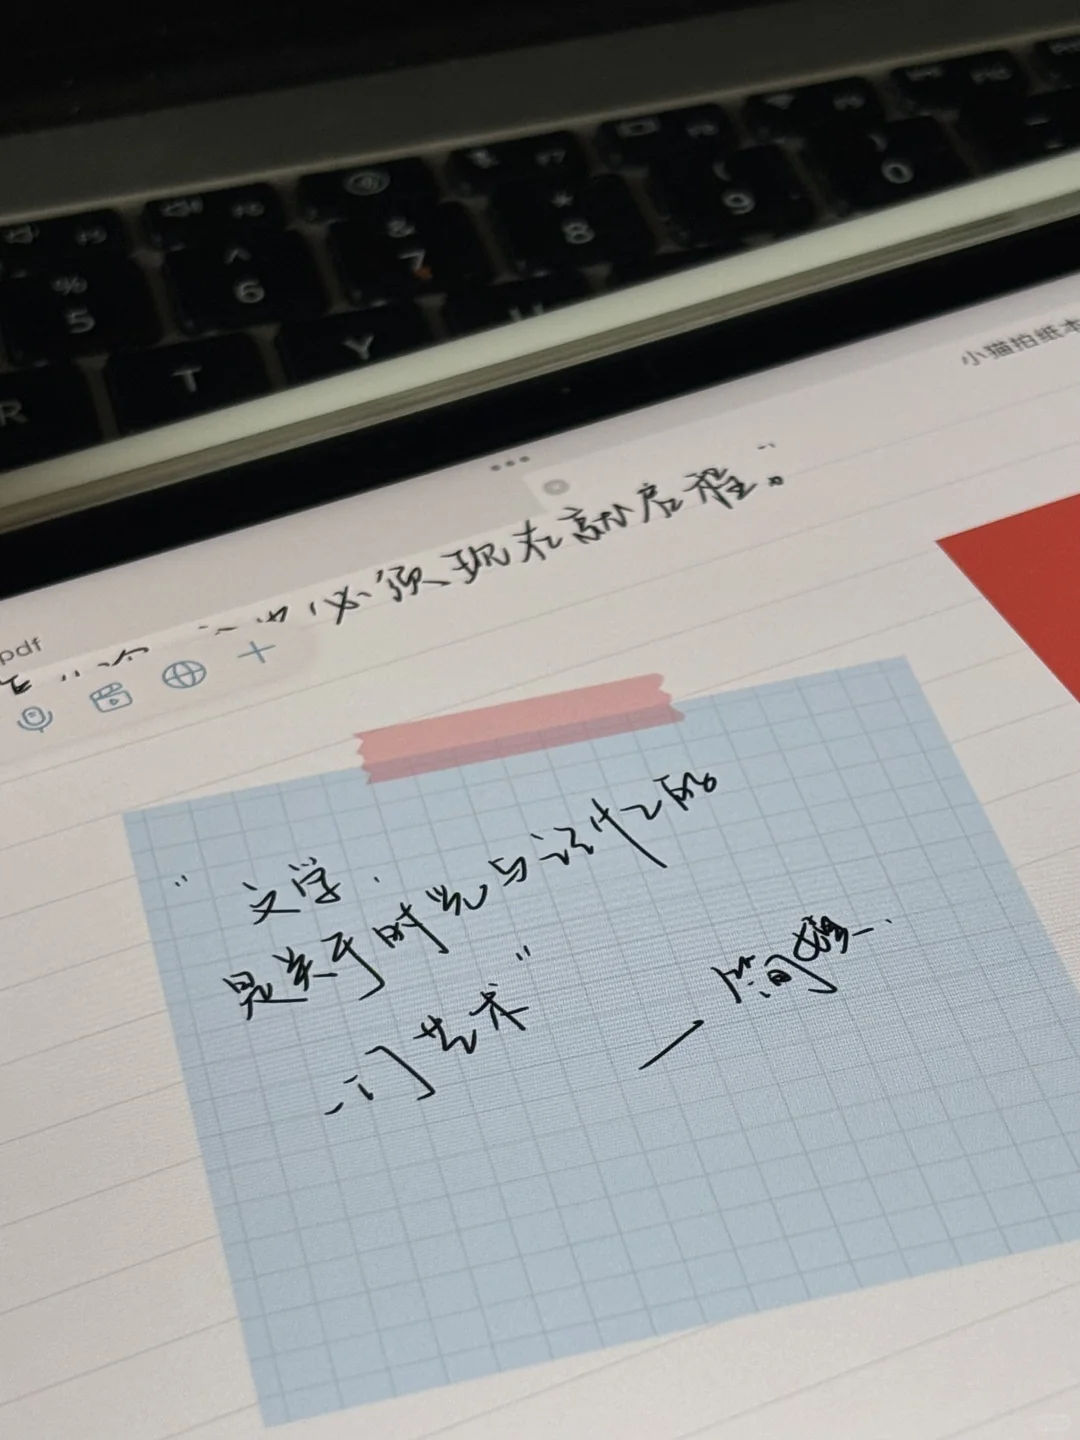 % 5
^ 6
& 7
* 8
( 9
) 0
R
T
Y
U
小猫拍纸本
pdf
必须现在就启程。”
“文学.
是关于时光与记忆的
一门艺术”
— 简媜